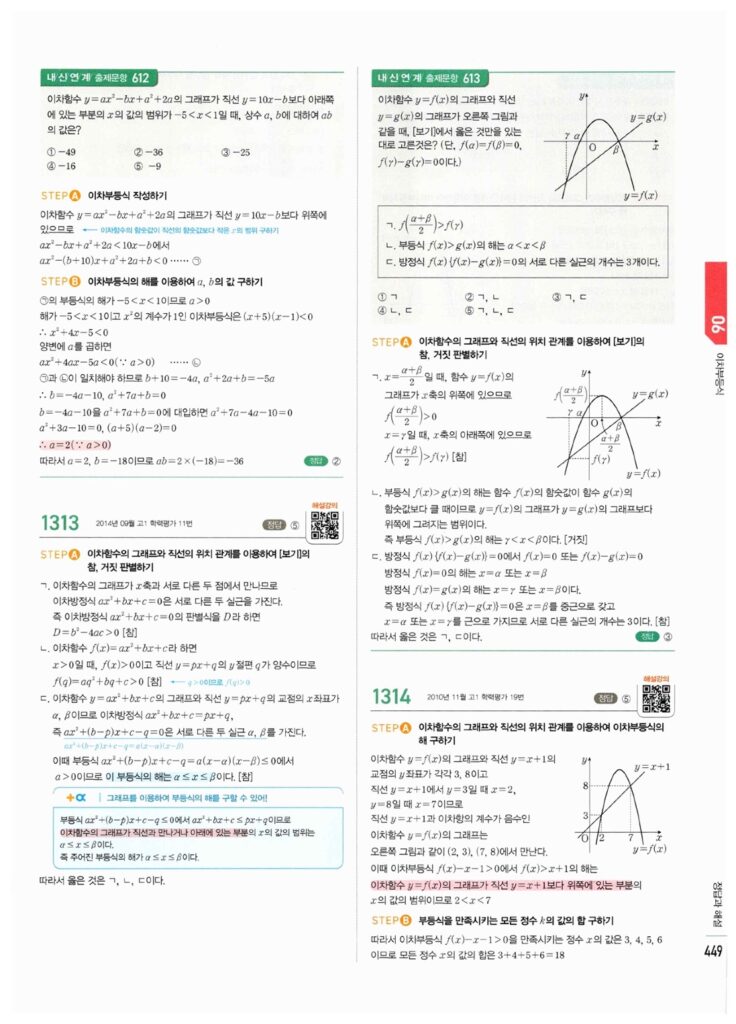 내신연계 출제문항 612
이차함수 y=ax²-bx+a²+2a의 그래프가 직선 y=10x-b보다 아래쪽
에 있는 부분의 x의 값의 범위가 -5<x<1일 때, 상수 a, b에 대하여 ab
의 값은?
① -49 ② -36 ③ -25
④ -16 ⑤ -9
STEP A 이차부등식 작성하기
이차함수 y=ax²-bx+a²+2a의 그래프가 직선 y=10x-b보다 위쪽에
있으므로 ← 이차함수의 함숫값이 직선의 함숫값보다 작은 x의 범위 구하기
ax²-bx+a²+2a<10x-b에서
ax²-(b+10)x+a²+2a+b<0 ⋯⋯ ㉠
STEP B 이차부등식의 해를 이용하여 a, b의 값 구하기
㉠의 부등식의 해가 -5<x<1이므로 a>0
해가 -5<x<1이고 x²의 계수가 1인 이차부등식은 (x+5)(x-1)<0
∴ x²+4x-5<0
양변에 a를 곱하면
ax²+4ax-5a<0(∵ a>0) ⋯⋯ ㉡
㉠과 ㉡이 일치해야 하므로 b+10=-4a, a²+2a+b=-5a
∴ b=-4a-10, a²+7a+b=0
b=-4a-10을 a²+7a+b=0에 대입하면 a²+7a-4a-10=0
a²+3a-10=0, (a+5)(a-2)=0
∴ a=2(∵ a>0)
따라서 a=2, b=-18이므로 ab=2×(-18)=-36 정답 ②
해설강의
1313 2014년 09월 고1 학력평가 11번 정답 ⑤
STEP A 이차함수의 그래프와 직선의 위치 관계를 이용하여 [보기]의
참, 거짓 판별하기
ㄱ. 이차함수의 그래프가 x축과 서로 다른 두 점에서 만나므로
이차방정식 ax²+bx+c=0은 서로 다른 두 실근을 가진다.
즉 이차방정식 ax²+bx+c=0의 판별식을 D라 하면
D=b²-4ac>0 [참]
ㄴ. 이차함수 f(x)=ax²+bx+c라 하면
x>0일 때, f(x)>0이고 직선 y=px+q의 y절편 q가 양수이므로
f(q)=aq²+bq+c>0 [참] ← q>0이므로 f(q)>0
ㄷ. 이차함수 y=ax²+bx+c의 그래프와 직선 y=px+q의 교점의 x좌표가
α, β이므로 이차방정식 ax²+bx+c=px+q,
즉 ax²+(b-p)x+c-q=0은 서로 다른 두 실근 α, β를 가진다.
ax²+(b-p)x+c-q=a(x-α)(x-β)
이때 부등식 ax²+(b-p)x+c-q=a(x-α)(x-β)≤0에서
a>0이므로 이 부등식의 해는 α≤x≤β이다. [참]
+α 그래프를 이용하여 부등식의 해를 구할 수 있어!
부등식 ax²+(b-p)x+c-q≤0에서 ax²+bx+c≤px+q이므로
이차함수의 그래프가 직선과 만나거나 아래에 있는 부분의 x의 값의 범위는
α≤x≤β이다.
즉 주어진 부등식의 해가 α≤x≤β이다.
따라서 옳은 것은 ㄱ, ㄴ, ㄷ이다.
내신연계 출제문항 613
이차함수 y=f(x)의 그래프와 직선
y=g(x)의 그래프가 오른쪽 그림과
같을 때, [보기]에서 옳은 것만을 있는
대로 고른것은? (단, f(α)=f(β)=0,
f(γ)-g(γ)=0이다.)
y
y=g(x)
γ α O β x
y=f(x)
ㄱ. f((α+β)/2)>f(γ)
ㄴ. 부등식 f(x)>g(x)의 해는 α<x<β
ㄷ. 방정식 f(x){f(x)-g(x)}=0의 서로 다른 실근의 개수는 3개이다.
① ㄱ ② ㄱ, ㄴ ③ ㄱ, ㄷ
④ ㄴ, ㄷ ⑤ ㄱ, ㄴ, ㄷ
STEP A 이차함수의 그래프와 직선의 위치 관계를 이용하여 [보기]의
참, 거짓 판별하기
ㄱ. x=(α+β)/2일 때, 함수 y=f(x)의
그래프가 x축의 위쪽에 있으므로
f((α+β)/2)>0
x=γ일 때, x축의 아래쪽에 있으므로
f((α+β)/2)>f(γ) [참]
y
f((α+β)/2)
y=g(x)
γ α O β x
(α+β)/2
f(γ)
y=f(x)
ㄴ. 부등식 f(x)>g(x)의 해는 함수 f(x)의 함숫값이 함수 g(x)의
함숫값보다 클 때이므로 y=f(x)의 그래프가 y=g(x)의 그래프보다
위쪽에 그려지는 범위이다.
즉 부등식 f(x)>g(x)의 해는 γ<x<β이다. [거짓]
ㄷ. 방정식 f(x){f(x)-g(x)}=0에서 f(x)=0 또는 f(x)-g(x)=0
방정식 f(x)=0의 해는 x=α 또는 x=β
방정식 f(x)=g(x)의 해는 x=γ 또는 x=β이다.
즉 방정식 f(x){f(x)-g(x)}=0은 x=β를 중근으로 갖고
x=α 또는 x=γ를 근으로 가지므로 서로 다른 실근의 개수는 3이다. [참]
따라서 옳은 것은 ㄱ, ㄷ이다. 정답 ③
해설강의
1314 2010년 11월 고1 학력평가 19번 정답 ⑤
STEP A 이차함수의 그래프와 직선의 위치 관계를 이용하여 이차부등식의
해 구하기
이차함수 y=f(x)의 그래프와 직선 y=x+1의
교점의 y좌표가 각각 3, 8이고
직선 y=x+1에서 y=3일 때 x=2,
y=8일 때 x=7이므로
직선 y=x+1과 이차항의 계수가 음수인
이차함수 y=f(x)의 그래프는
오른쪽 그림과 같이 (2, 3), (7, 8)에서 만난다.
이때 이차부등식 f(x)-x-1>0에서 f(x)>x+1의 해는
이차함수 y=f(x)의 그래프가 직선 y=x+1보다 위쪽에 있는 부분의
x의 값의 범위이므로 2<x<7
y
y=x+1
8
3
O 2 7 x
y=f(x)
STEP B 부등식을 만족시키는 모든 정수 k의 값의 합 구하기
따라서 이차부등식 f(x)-x-1>0을 만족시키는 정수 x의 값은 3, 4, 5, 6
이므로 모든 정수 x의 값의 합은 3+4+5+6=18
06
이차부등식
정답과 해설
449